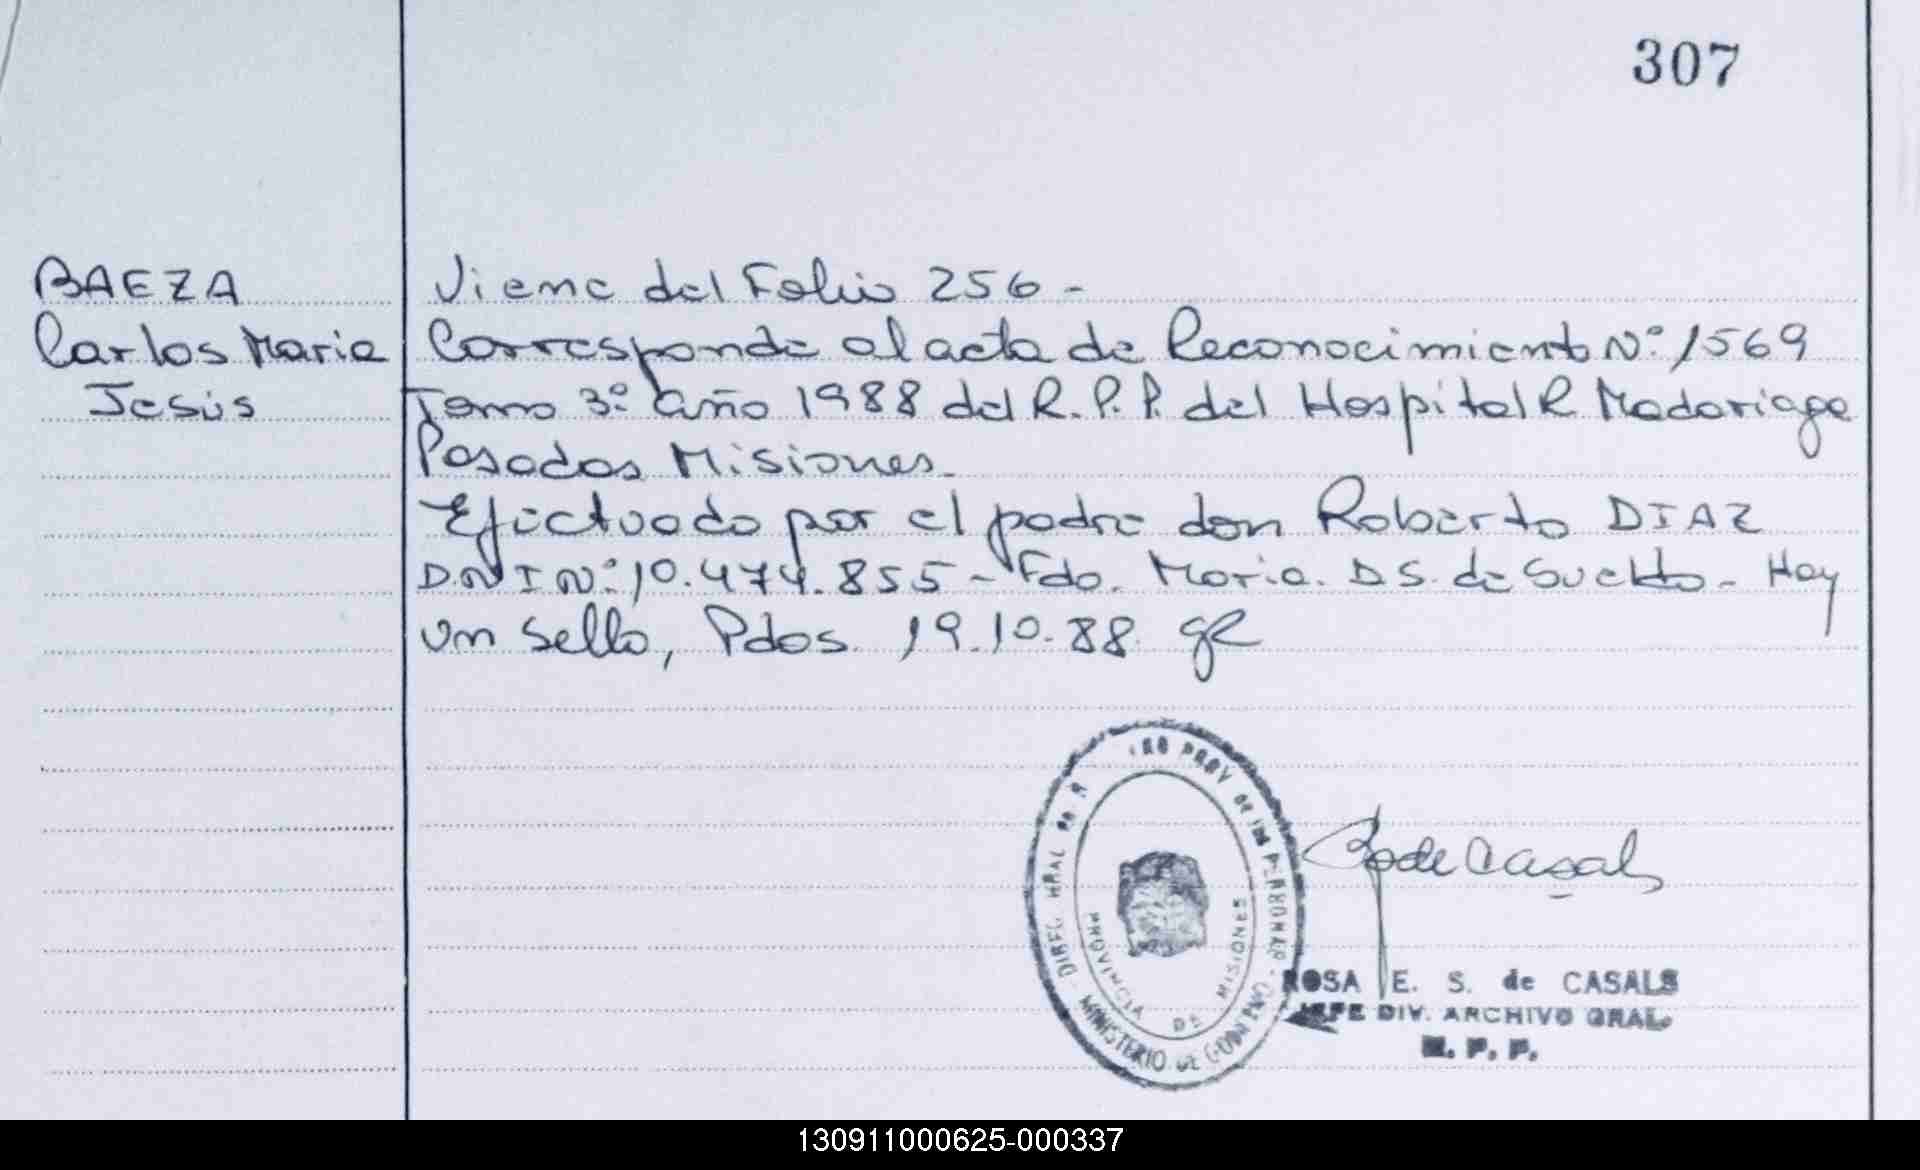 307
BAEZA
Carlos Maria
Jesús
Viene del Folio 256 -
Corresponde al acta de Reconocimiento Nº 1569
Tomo 3º año 1988 del R.P.P. del Hospital R Madariaga
Posadas Misiones.
Efectuado por el padre don Roberto DIAZ
D.N I Nº 10.474.855 - Fdo. Maria. D S. de Sueldo - Hay
un sello, Pdas. 19.10.88
PROVINCIA DE MISIONES
MINISTERIO DE
Rode Casals
ROSA E. S. de CASALS
JEFE DIV. ARCHIVO GRAL.
R. P. P.
130911000625-000337